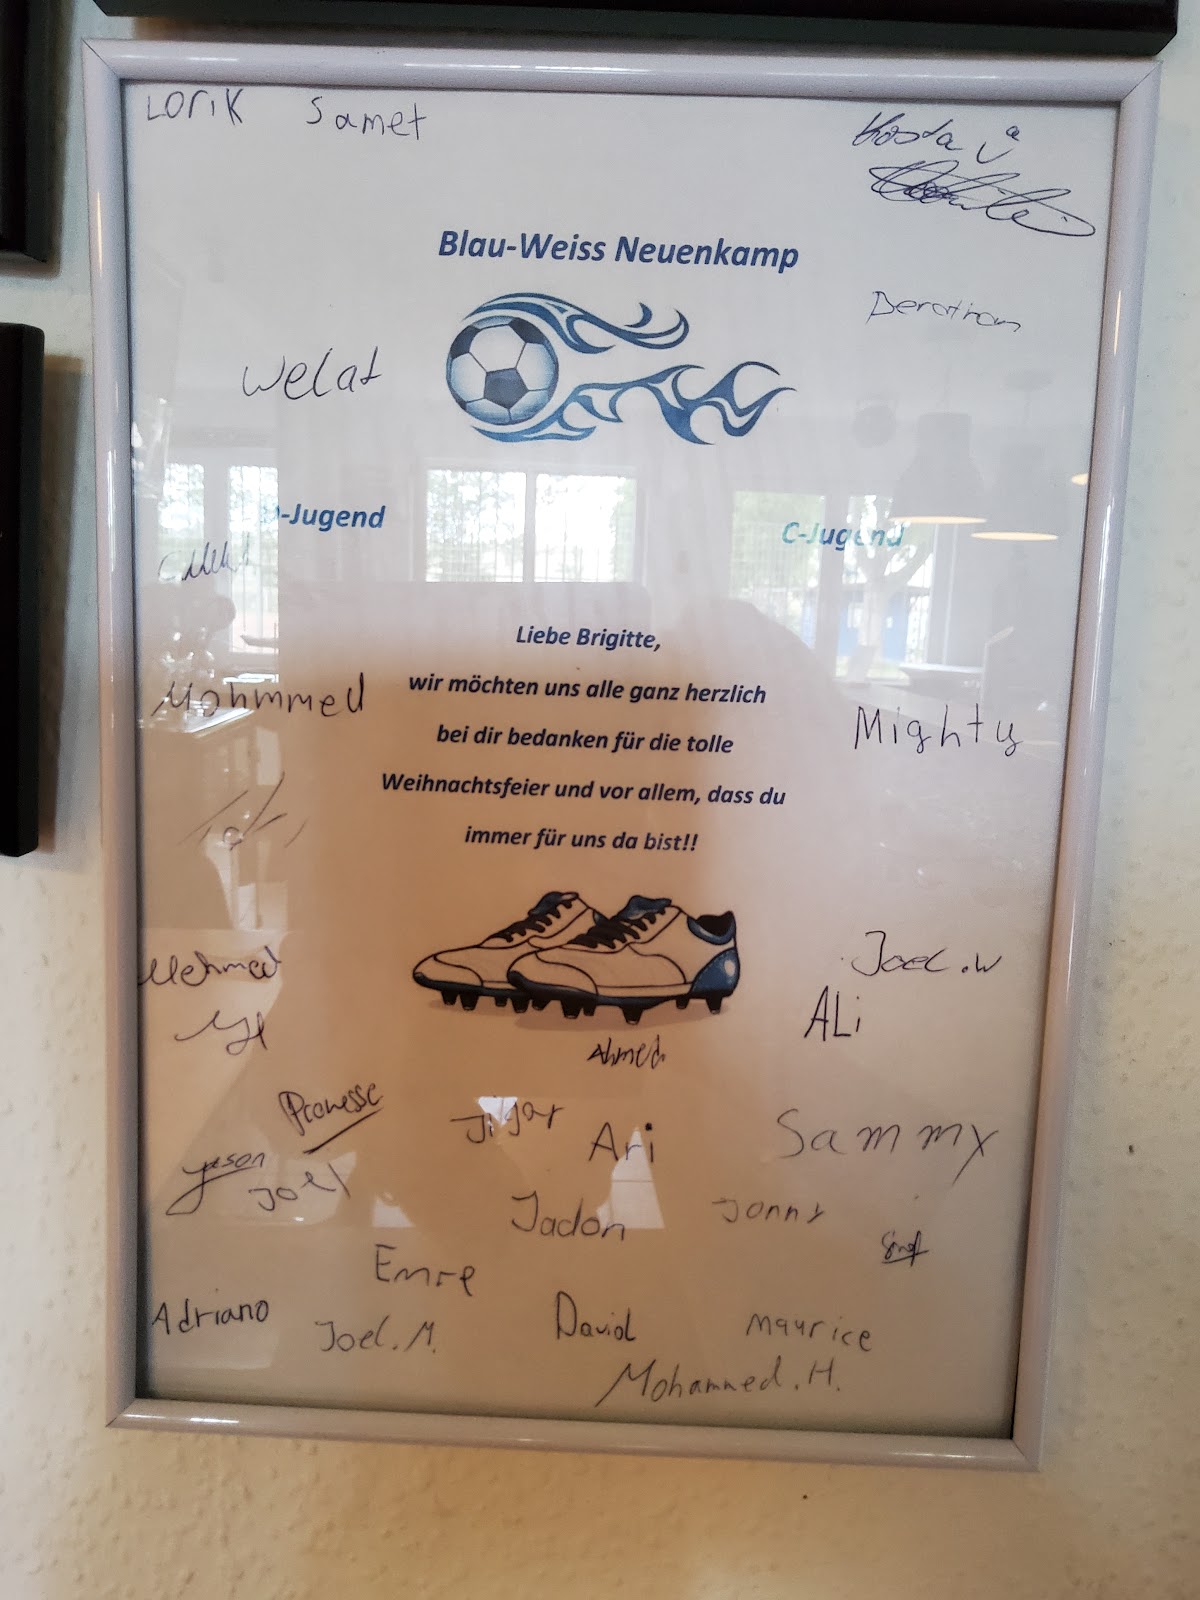 LoriK Samet
Kosta
Blau-Weiss Neuenkamp
Welat
-Jugend
C-Jugend
Liebe Brigitte,
wir möchten uns alle ganz herzlich
bei dir bedanken für die tolle
Weihnachtsfeier und vor allem, dass du
immer für uns da bist!!
Mohmmed
Mighty
Mehmed
Joel.W
ALi
Ahmed
Promesse
Jijar
Ari
Sammy
Jason
Joel
Jadon
Jonny
Emre
Adriano
Joel.M.
David
Maurice
Mohammed.H.